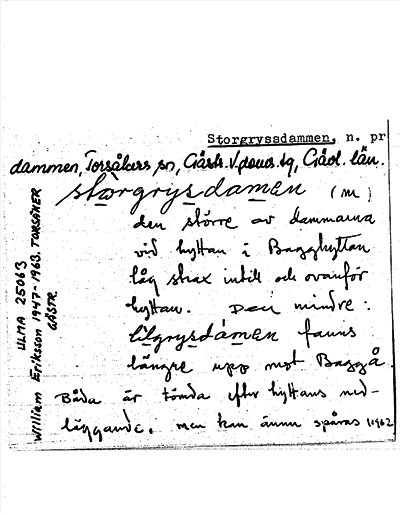 Storgryssdammen, n. pr
dammen, Torsåkers sn, Gästr. V. doms. tg, Gävl. län.
storgrysdamen (m)
den större av dammarna
vid hyttan i Bagghyttan
låg strax intill och ovanför
hyttan. Den mindre:
lilgrysdåmen fanns
längre upp mot Baggå.
Båda är tömda efter hyttans ned-
läggande. men kan ännu spåras 1962
ULMA 25063
William Eriksson 1947-1963. TORSÅKER
GÄSTR